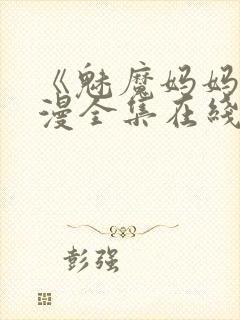 《魅魔妈妈
漫全集在线
彭强